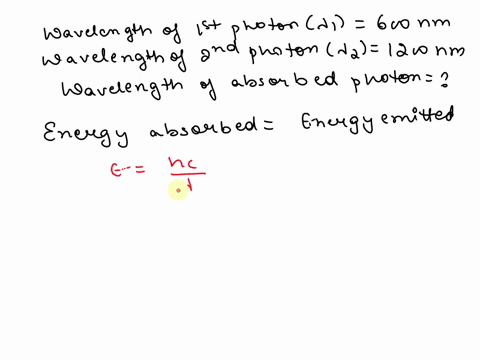 Wavelength of 1st photon (λ1) = 600 nm
Wavelength of 2nd photon (λ2) = 1200 nm
Wavelength of absorbed photon = ?
Energy absorbed = Energy emitted
E = hc/λ